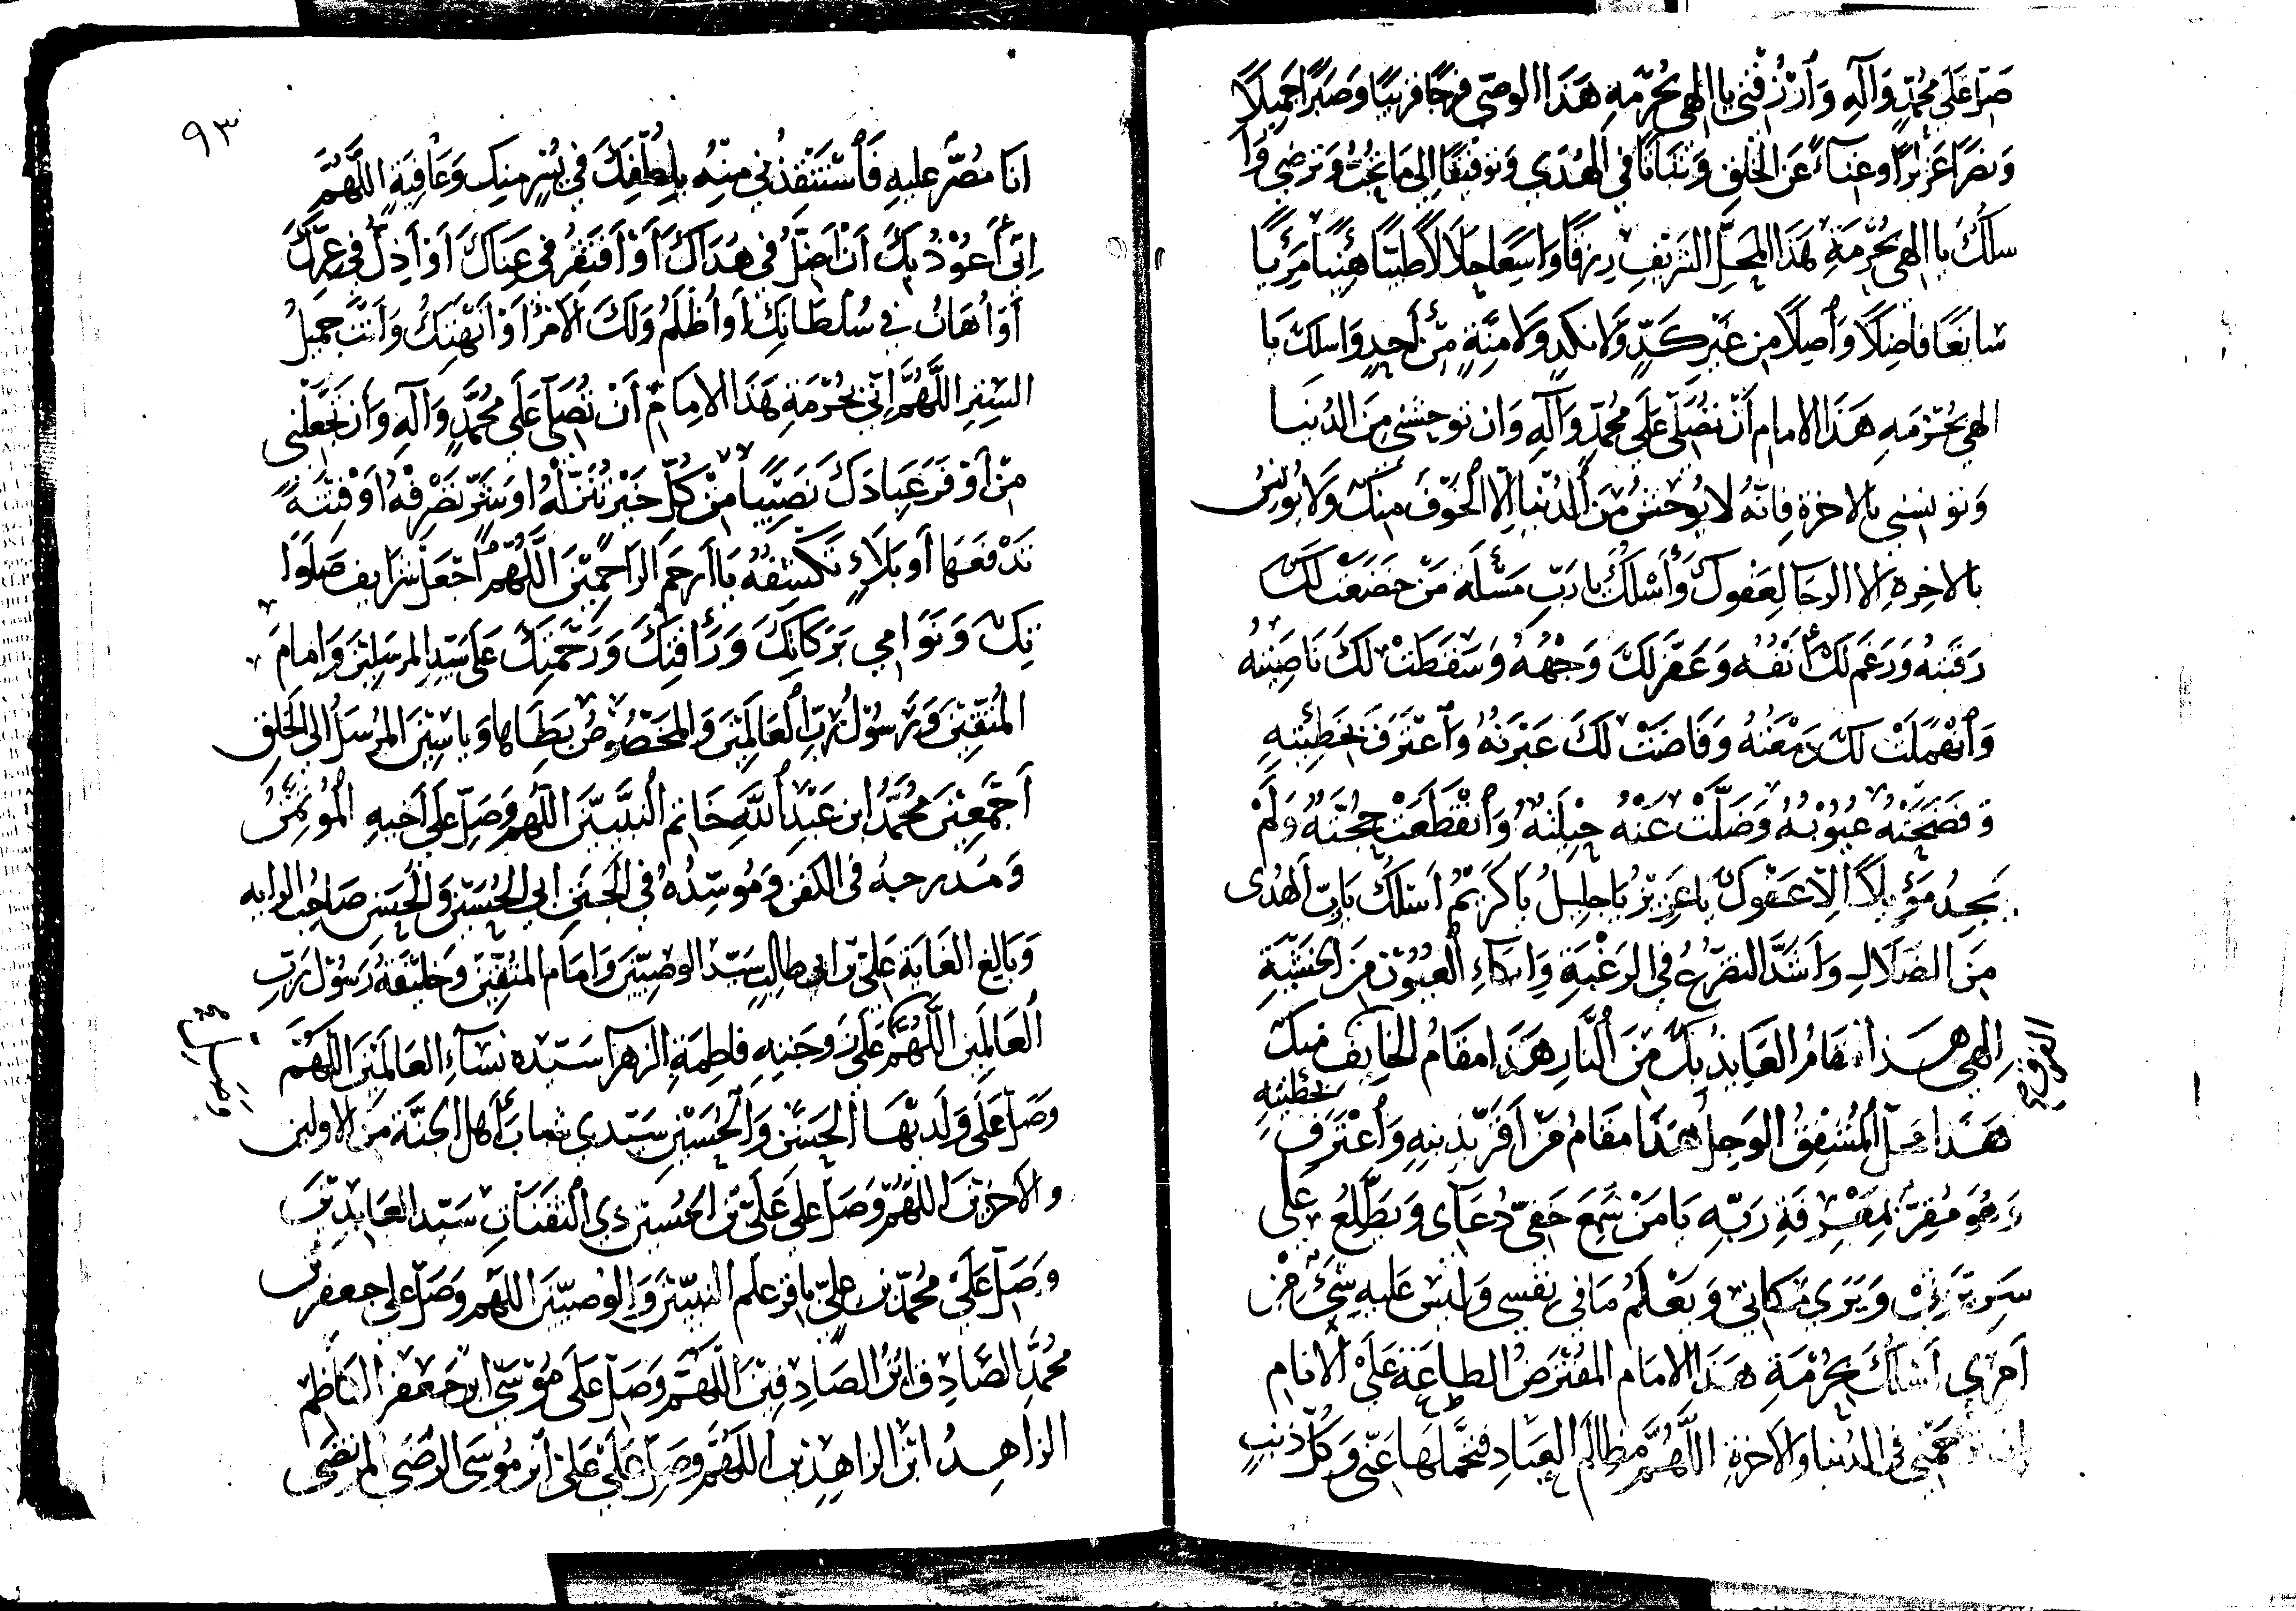 صل على محمد وآله وارزقني يا الهي بحرمة هذا الوصي فرجا قريبا وصبرا جميلا
ونصرا عزيزا وغناء عن الخلق وثباتا في الهدى وتوفيقا الى ما تحب وترضى وأ
سلك يا الهي بحرمة هذا المحل الشريف رزقا واسعا حلالا طيبا هنيئا مريئا
سائغا فاضلا وأصلا من غير كد ولا نكد ولا منة من أحد واسلك يا
الهي بحرمه هذا الامام أن تصلي على محمد وآله وان توحشني من الدنيا
وتونسني بالاخرة فانه لا يوحش من الدنيا الا الخوف منك ولا يونس
بالاخرة الا الرجا لعفوك وأسلك يا رب مسئلة من خضعت لك
رقبته ورغم لك أنفه وعفر لك وجهه وسقطت لك ناصيته
وانهملت لك دمعته وفاضت لك عبرته واعترف بخطيئته
وفضحته عيوبه وضلت عنه حيلته وانقطعت حجته ولم
يجد مؤيلا الا عفوك يا عزيز يا جليل يا كريم اسلك يا رب الهدى
من الضلال وأشد التضرع في الرغبة وابكاء العيون من الخشية
الهي هذا مقام العايذ بك من النار هذا مقام الخايف منك
هذا محل المشفق الوجل هذا مقام من أقر بذنبه واعترف بخطيئته
وهو مقر بمعرفة ربه يا من سمع خفي دعآى ويطلع على
سريرتي ويرى مكاني ويعلم ما في نفسي وليس عليه شيء من
أمري أسئلك بحرمة هذا الامام المفترض الطاعة على الانام
ان ترحمني في الدنيا والاخرة اللهم مظالم العباد فتحملها عني وكل ذنب
٩٣
انا مصر عليه فاستنقذني منه بلطفك في يسر منك وعافية اللهم
اني أعوذ بك أن أضل في هداك أو أفتقر في غناك أو أذل في عزك
أو أهان في سلطانك أو أظلم ولك الامر أو أنهتك وأنت جميل
الستر اللهم اني بحرمة هذا الامام أن تصلي على محمد وآله وان تجعلني
من أوفر عبادك نصيبا من كل خير تنزله او شر تصرفه او فتنة
تدفعها أو بلاء تكشفه يا أرحم الراحمين اللهم اجعل شرايف صلوا
تك ونوامي بركاتك ورأفتك ورحمتك على سيد المرسلين وامام
المتقين ورسول رب العالمين والمخصوص بطاها وياسين المرسل الى الخلق
أجمعين محمد ابن عبد الله خاتم النبيين اللهم وصل على أخيه الموتمن
ومدرجه في الكفن وموسده في الجنن ابي الحسين والحسن صاحب الرايه
وبالغ الغاية علي بن ابي طالب سيد الوصيين وامام المتقين وخليفة رسول رب
العالمين اللهم على زوجته فاطمة الزهرا سيده نسآء العالمين اللهم
وصل
وصل على ولديهما الحسن والحسين سيدي شباب أهل الجنة من الاولين
والاخرين اللهم وصل على علي بن الحسين ذي الثفنات سيد العابدين
وصل على محمد بن علي باقر علم النبيين والوصيين اللهم وصل على جعفر بن
محمد الصادق ابن الصادقين اللهم وصل على موسى ابن جعفر الكاظم
الزاهد ابن الزاهدين اللهم وصل على علي ابن موسى الرضى المرتضى